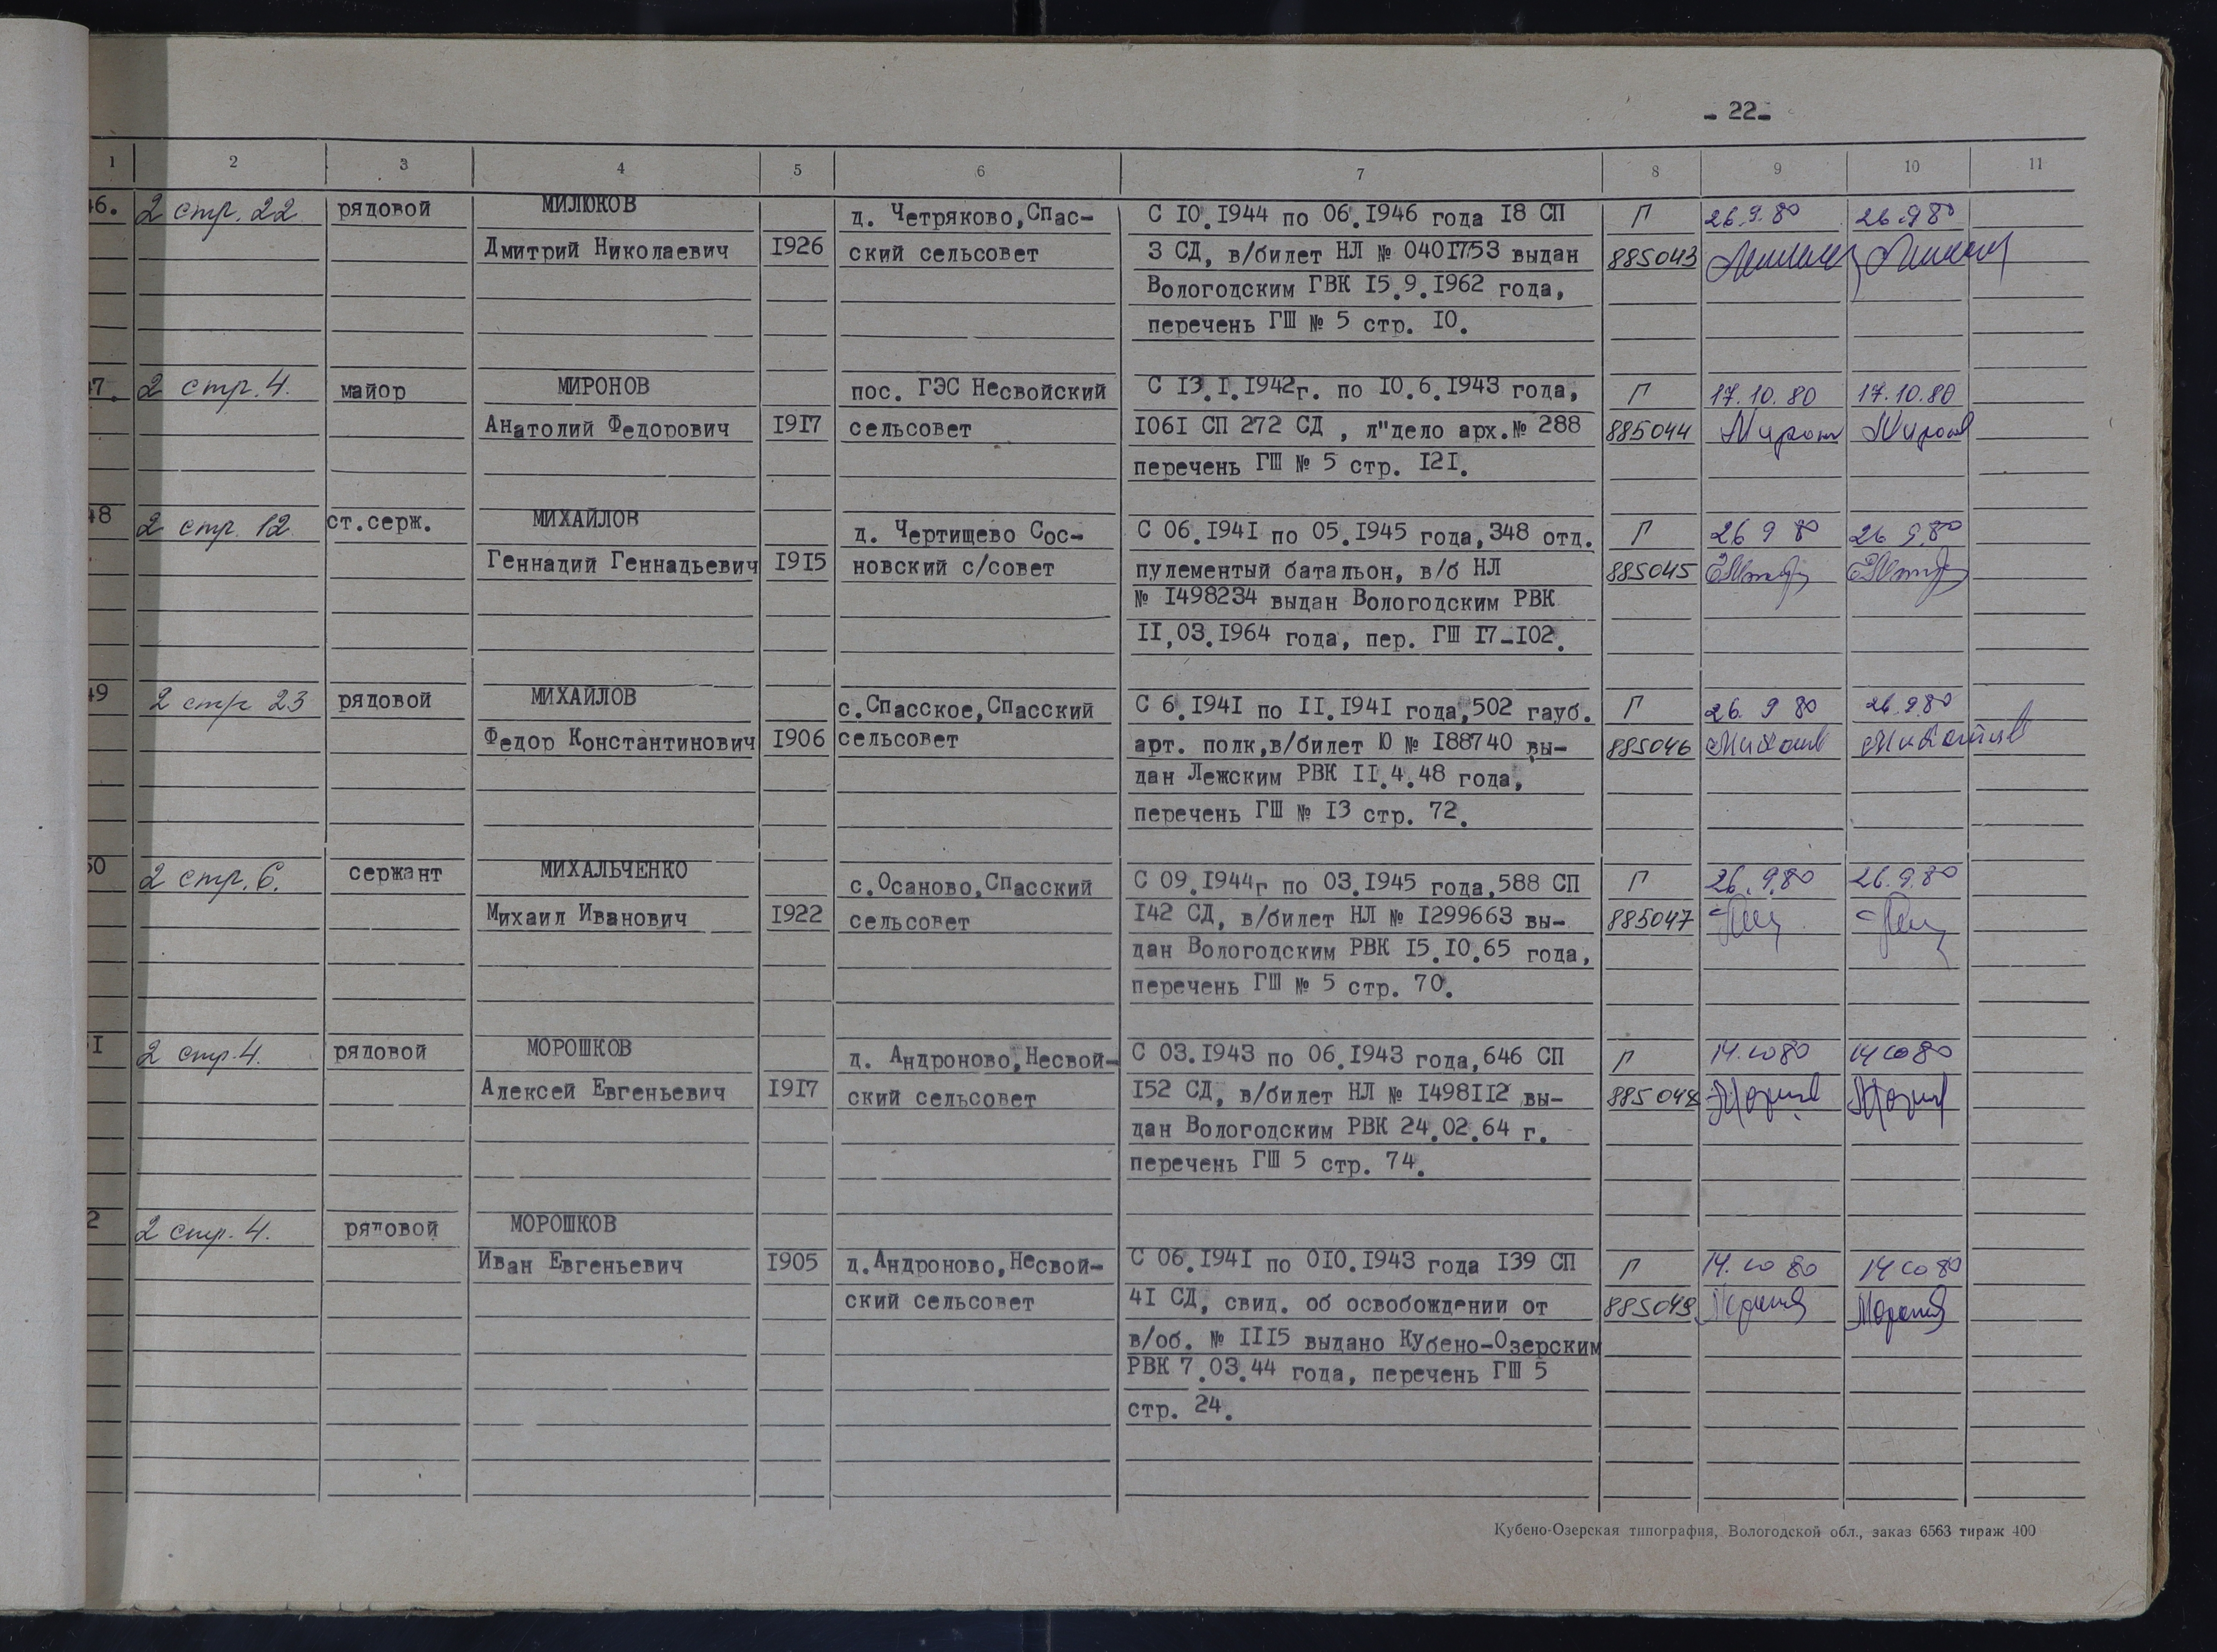 - 22-
1 2 3 4 5 6 7 8 9 10 11
46. 2 стр. 22 рядовой МИЛЮКОВ д. Четряково, Спас- С 10.1944 по 06.1946 года 18 СП П 26.9.80 26.9 80
Дмитрий Николаевич 1926 ский сельсовет 3 СД, в/билет НЛ № 0401753 выдан 885043
Вологодским ГВК 15.9.1962 года,
перечень ГШ № 5 стр. 10.
47. 2 стр. 4. майор МИРОНОВ пос. ГЭС Несвойский С 13.1.1942г. по 10.6.1943 года, П 17.10.80 17.10.80
Анатолий Федорович 1917 сельсовет 1061 СП 272 СД , л"дело арх.№ 288 885044
перечень ГШ № 5 стр. 121.
48 2 стр. 12. ст.серж. МИХАЙЛОВ д. Чертищево Сос- С 06.1941 по 05.1945 года, 348 отд. П 26 9 80 26 9.80
Геннадий Геннадьевич 1915 новский с/совет пулементый батальон, в/б НЛ 885045
№ 1498234 выдан Вологодским РВК
11,03.1964 года, пер. ГШ 17-102.
49 2 стр 23 рядовой МИХАЙЛОВ с.Спасское, Спасский С 6.1941 по 11.1941 года, 502 гауб. П 26. 9 80 26.9.80
Федор Константинович 1906 сельсовет арт. полк, в/билет Ю № 188740 вы- 885046
дан Лежским РВК 11.4.48 года,
перечень ГШ № 13 стр. 72.
50 2 стр. 6. сержант МИХАЛЬЧЕНКО с.Осаново, Спасский С 09.1944г по 03.1945 года, 588 СП П 26.9.80 26.9.80
Михаил Иванович 1922 сельсовет 142 СД, в/билет НЛ № 1299663 вы- 885047
дан Вологодским РВК 15.10.65 года,
перечень ГШ № 5 стр. 70.
1 2 стр. 4. рядовой МОРОШКОВ д. Андроново, Несвой- С 03.1943 по 06.1943 года, 646 СП П 14.10 80 14 10 80
Алексей Евгеньевич 1917 ский сельсовет 152 СД, в/билет НЛ № 1498112 вы- 885048
дан Вологодским РВК 24.02.64 г.
перечень ГШ 5 стр. 74.
2 2 стр. 4. рядовой МОРОШКОВ
Иван Евгеньевич 1905 д. Андроново, Несвой- С 06.1941 по 010.1943 года 139 СП П 14.10 80 14 10 80
ский сельсовет 41 СД, свид. об освобождении от 885049
в/об. № 1115 выдано Кубено-Озерским
РВК 7.03.44 года, перечень ГШ 5
стр. 24.
Кубено-Озерская типография, Вологодской обл., заказ 6563 тираж 400